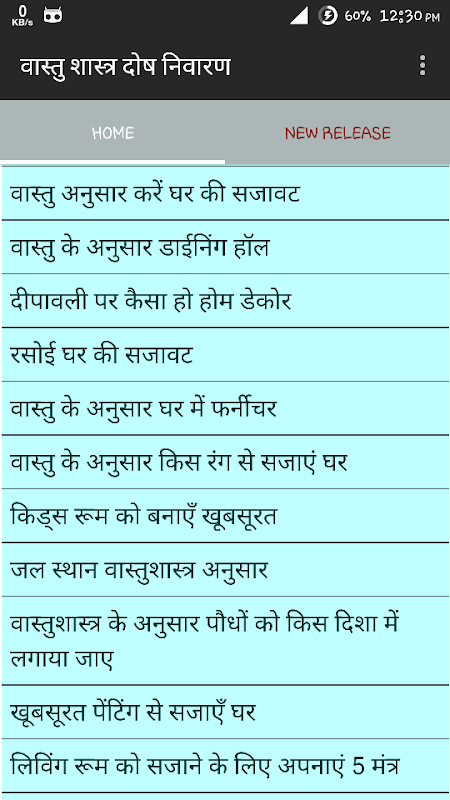 0
KB/s
60% 12:30 PM
वास्तु शास्त्र दोष निवारण
HOME
NEW RELEASE
वास्तु अनुसार करें घर की सजावट
वास्तु के अनुसार डाईनिंग हॉल
दीपावली पर कैसा हो होम डेकोर
रसोई घर की सजावट
वास्तु के अनुसार घर में फर्नीचर
वास्तु के अनुसार किस रंग से सजाएं घर
किड्स रूम को बनाएँ खूबसूरत
जल स्थान वास्तुशास्त्र अनुसार
वास्तुशास्त्र के अनुसार पौधों को किस दिशा में
लगाया जाए
खूबसूरत पेंटिंग से सजाएँ घर
लिविंग रूम को सजाने के लिए अपनाएं 5 मंत्र